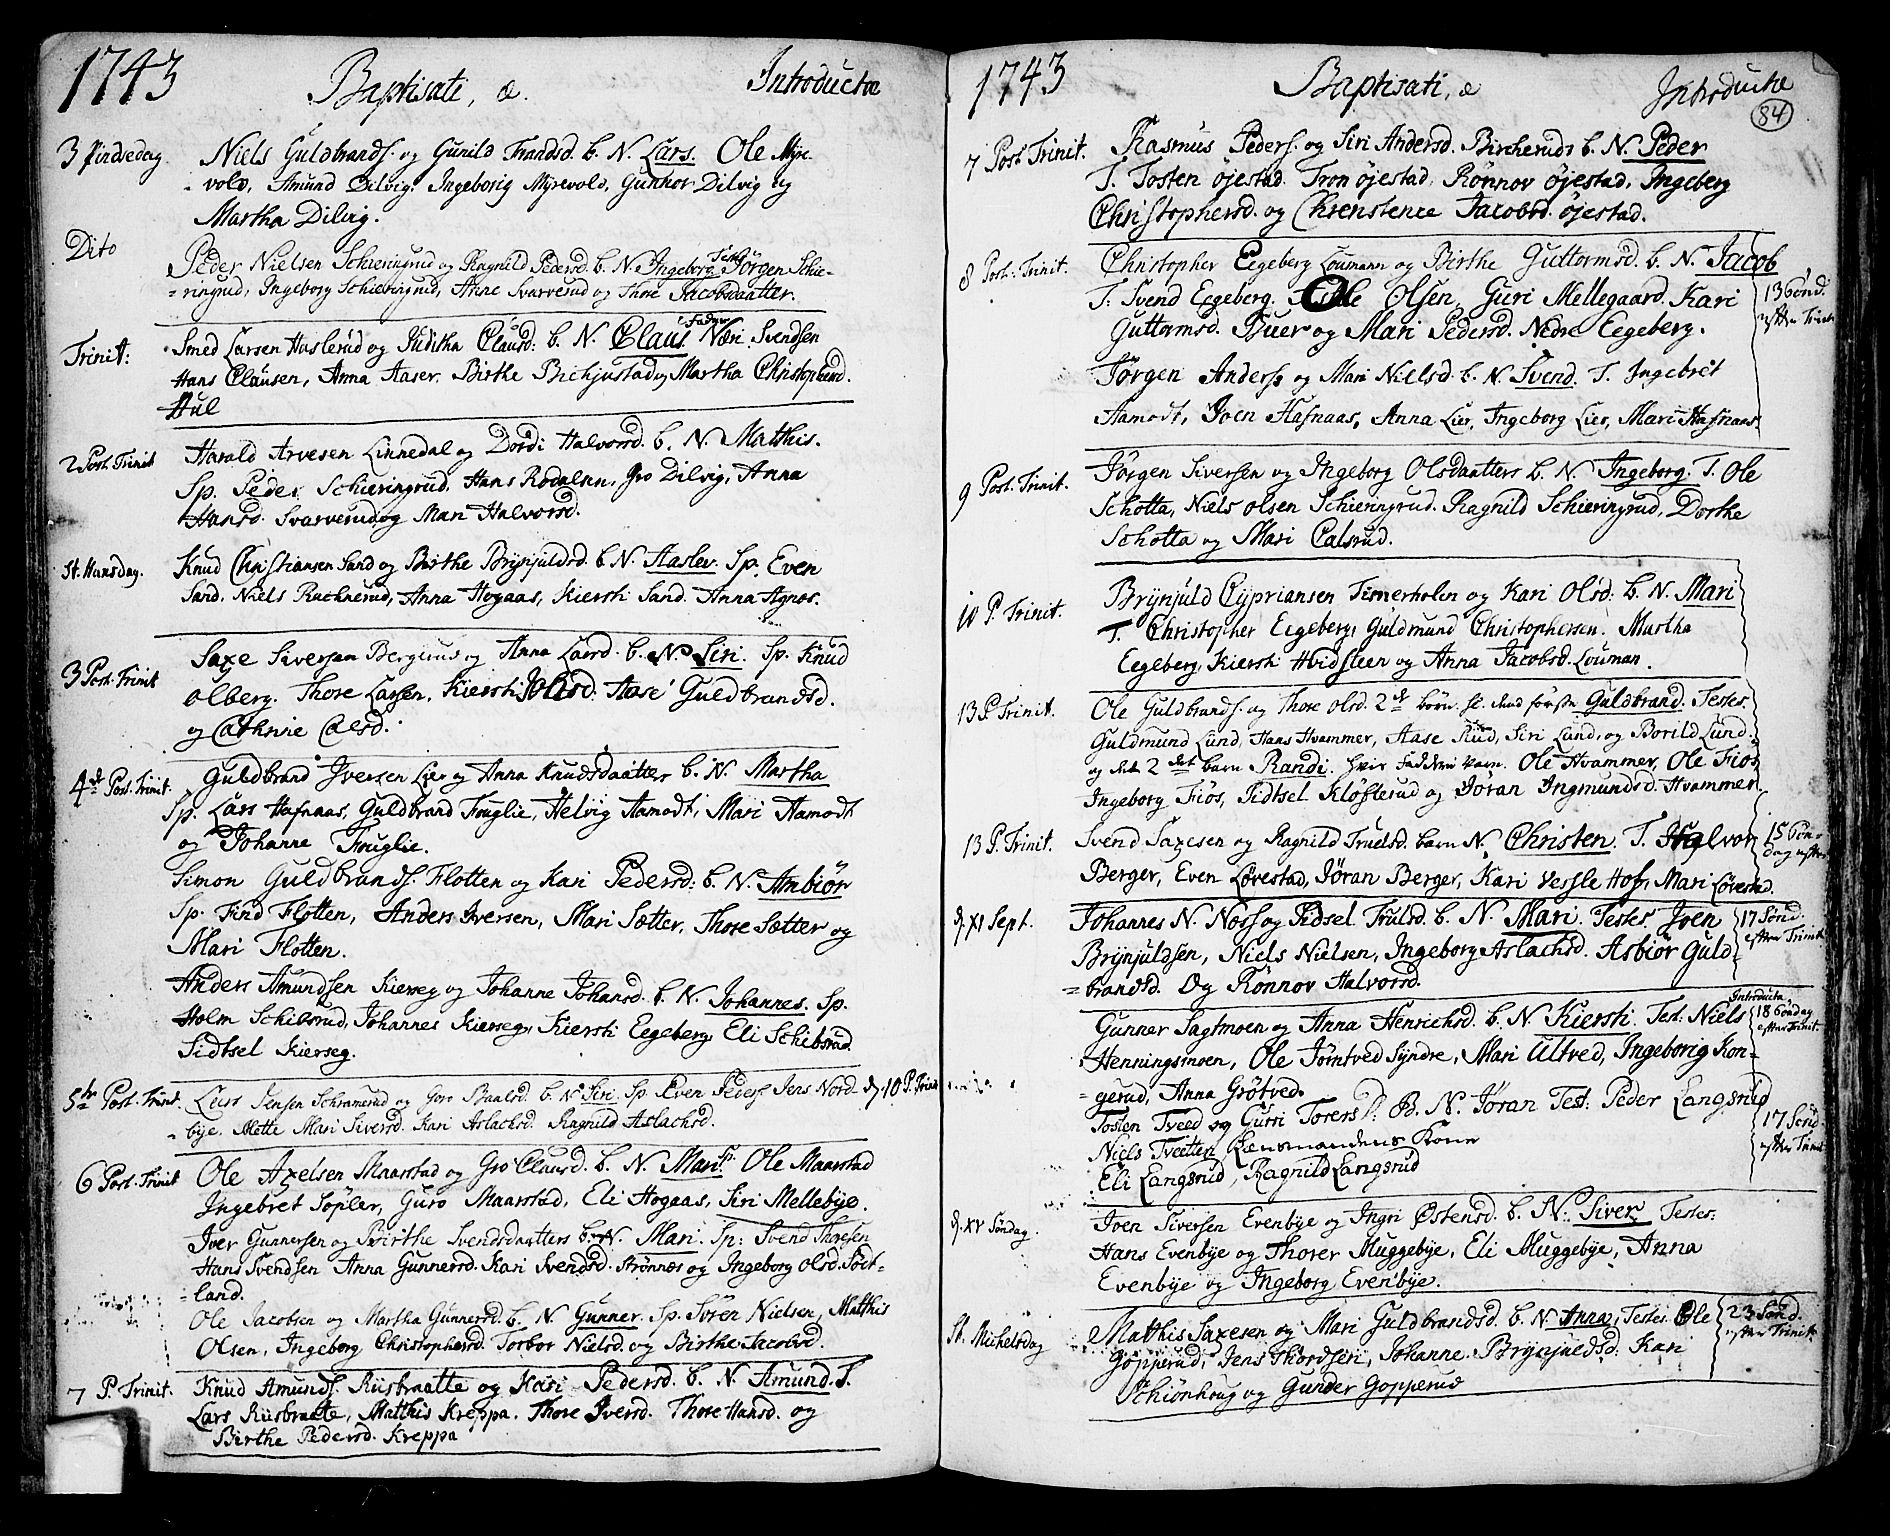 1743 Baptisati, æ. Introductæ
3 Pindsedag Niels Guldbrands. og Gunild Frandsd. b. N. Lars. Ole Myre-
vold, Amund Dilvig, Ingeborig Myrevold, Gunhor Dilvig og
Martha Dilvig.
Dito Peder Nielsen Schieringrud og Ragnild Pedersd. b. N. Ingeborg. Test. Jörgen Schie-
ringrud, Ingeborg Schieringrud, Anne Svarverud og Thore Jacobsdaatter.
Trinit: Smed Larsen Huslerud og Juditha Clausd: b. N. Claus. Fadder Svendsen
Hans Clausen, Anna Aaser, Birthe og Martha Christophersd.
Hul
2 Post. Trinit Harald Arvesen Linnedal og Dordi Halvorsd. b. N. Matthis.
Sp. Peder Schieringrud. Hans Rodalsen, Gro Dilvig, Anna
Hansd. Svarverud og Mari Halvorsd.
St. Hansdag. Knud Christiansen Sand og Birthe Brynjuldsd. b. N. Aaslev. Sp. Even
Sand, Niels Ruchnerud, Anna Hogaas, Kiersti Sand. Anna Agnes.
3 Post. Trinit Saxe Siversen Bergerud og Anna Larsd. b. N. Siri. Sp. Knud
Olberg. Thore Larsen, Kiersti Olsd. Aase Guldbrandsd.
og Cathrine Calsd.
4de Post. Trinit. Guldbrand Iversen Lier og Anna Knudsdaatter b. N. Martha
Sp. Lars Hafnaas, Guldbrand Fruglie, Helvig Aamodt, Mari Aamodt
og Johanne Fruglie.
Simon Guldbrands. Flotten og Kari Pedersd: b. N. Ambiör
Sp. Find Flotten, Anders Iversen, Mari Sætter, Thore Sætter og
Mari Flotten.
Anders Amundsen Kierseg og Johanne Johansd. b. N. Johannes. Sp.
Holm Schibsrud, Johannes Kierseg, Kiersti Eegeberg, Eli Schibsrud
Sidtsel Kierseg.
5te Post. Trinit. Lars Jensen Schramerud og Goro Paalsd. b. N. Siri. Sp. Even Peders. Jens Nord- d. 10 P. Trinit
bye. Mette Mari Siversd. Kari Aslachsd. Ragnild Aslachsd.
6 Post. Trinit Ole Axelsen Maarstad og Gro Clausd. b. N. Mari. Sp. Ole Maarstad
Ingebret Sopler, Guro Maarstad, Eli Hogaas, Siri Mellebye.
Iver Gunnersen og Birthe Svendsdaatters b. N. Mari. Sp: Svend Thoresen
Hans Svendsen Anna Gunnersd. Kari Svendsd. Strønnæs og Ingeborg Olsd. Södt-
land.
Ole Jacobsen og Martha Gunnersd. b. N. Gunner. Sp. Sören Nielsen, Matthis
Olsen, Ingeborg Christophersd. Torbor Nielsd. og Birthe Jacobsd.
7 P. Trinit. Knud Amunds. Riisbraatte og Kari Pedersd. b. N. Amund. T.
Lars Riisbraatte, Matthis Kreppa. Thore Iversd. Thore Hansd. og
Birthe Pedersd. Kreppa
1743 Baptisati, æ Introductæ
84
7 Post Trinit. Rasmus Peders. og Siri Andersd. Bircherud b. N. Peder
T. Tosten Øjestad. Tron Øjestad, Rönnov Øjestad, Ingeberg
Christophersd. og Chrenstence Jacobsd. Øjestad.
8 Post. Trinit. Christopher Eegeberg Loumann og Birthe Guttormsd. b. N. Jacob
T. Svend Eegeberg. Ole Olsen, Guri Mellegaard. Kari 13 Sönd.
Guttormsd. Buer og Mari Pedersd. Nedre Eegeberg. efter Trinit
Jörgen Anders. og Mari Nielsd. b. N. Svend. T. Ingebret
Aamodt, Joen Hafnaas, Anna Lier, Ingeborg Lier, Mari Hafnaas
9 Post. Trinit. Jörgen Siversen og Ingeborg Olsdaatters b. N. Ingeborg. T. Ole
Schotta, Niels Olsen Schieringrud. Ragnild Schieringrud, Dorthe
Schotta og Mari Calsrud.
10 P. Trinit. Brynjuld Cyprianssen Timerholen og Kari Olsd: b. N. Mari
T. Christopher Eegeberg, Guldmund Christophersen. Martha
Eegeberg, Kiersti Hvidsteen og Anna Jacobsd. Louman.
13 P. Trinit. Ole Guldbrands. og Thore Olsd. 2de börn. Guldbrand. Testes.
Guldmund Lund, Hans Hvammer, Aase Rud, Siri Lund, og Borild Lund.
og det 2det barn Randi. hvis Faddere vare. Ole Hvammer, Ole Fios
Ingeborg Fiös, Sidtsel Klösterud og Jöran Ingmundsd. Hvammer.
13 P. Trinit. Svend Saxesen og Ragnild Truelsd. barn N. Christen. T. Halvor 15 Sön-
Berger, Even Lövestad, Jöran Berger, Kari Vessle Hof, Mari Lövestad. dag efter
d. XI Sept. Johannes N. Noss og Sidsel Trulsd. b. N. Mari. Testes. Joen 17 Sönd.
Brynjuldsen, Niels Nielsen, Ingeborg Aslachsd. Asbiör Guld- efter Trinit
brandsd. Og Rönnov Halvorsd.
Gunner Sagmoen og Anna Henrichsd. b. N. Kiersti. Test. Niels Introducta, 18 Söndag
Henningsmoen, Ole Tömtved Syndre, Mari Ultved, Ingeborig Kon- efter Trinit.
gerud, Anna Grötved.
Tosten Tveed og Guri Torersd. B. N. Jöran Test: Peder Langsrud
Niels Tveetten Lensmandens Kone 17 Sönd
Eli Langsrud, Ragnild Langsrud efter Trinit
d. XV Söndag. Joen Siversen Evenbye og Ingri Østensd. b. N. Siver. Testes:
Hans Evenbye og Thorer Muggebye, Eli Muggebye, Anna
Evenbye og Ingeborg Evenbye.
St. Michelsdag Matthis Saxesen og Mari Guldbrandsd. b. N. Anna, Testes. Ole 23 Sönd.
Gopperud, Jens Thordsen, Johanne Brynjuldsd. Kari efter Trinit
Schiönhoug og Gunder Gopperud